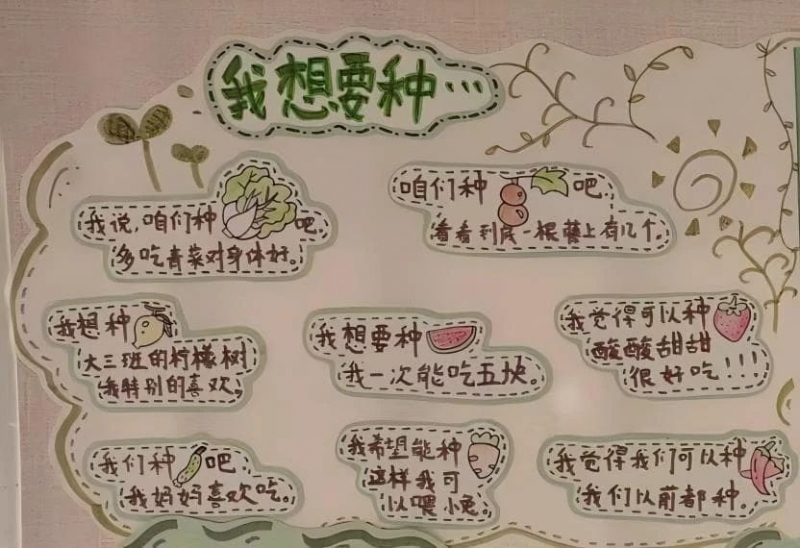 我想要种…
我说,咱们种 吧
多吃青菜对身体好。
咱们种 吧
看看到底一根藤上有几个。
我想种
大三班的柠檬树
我特别的喜欢。
我想要种
我一次能吃五块。
我觉得可以种
酸酸甜甜
很好吃!!!
我们种 吧
我妈妈喜欢吃。
我希望能种
这样我可
以喂小兔。
我觉得我们可以种
我们以前都种。